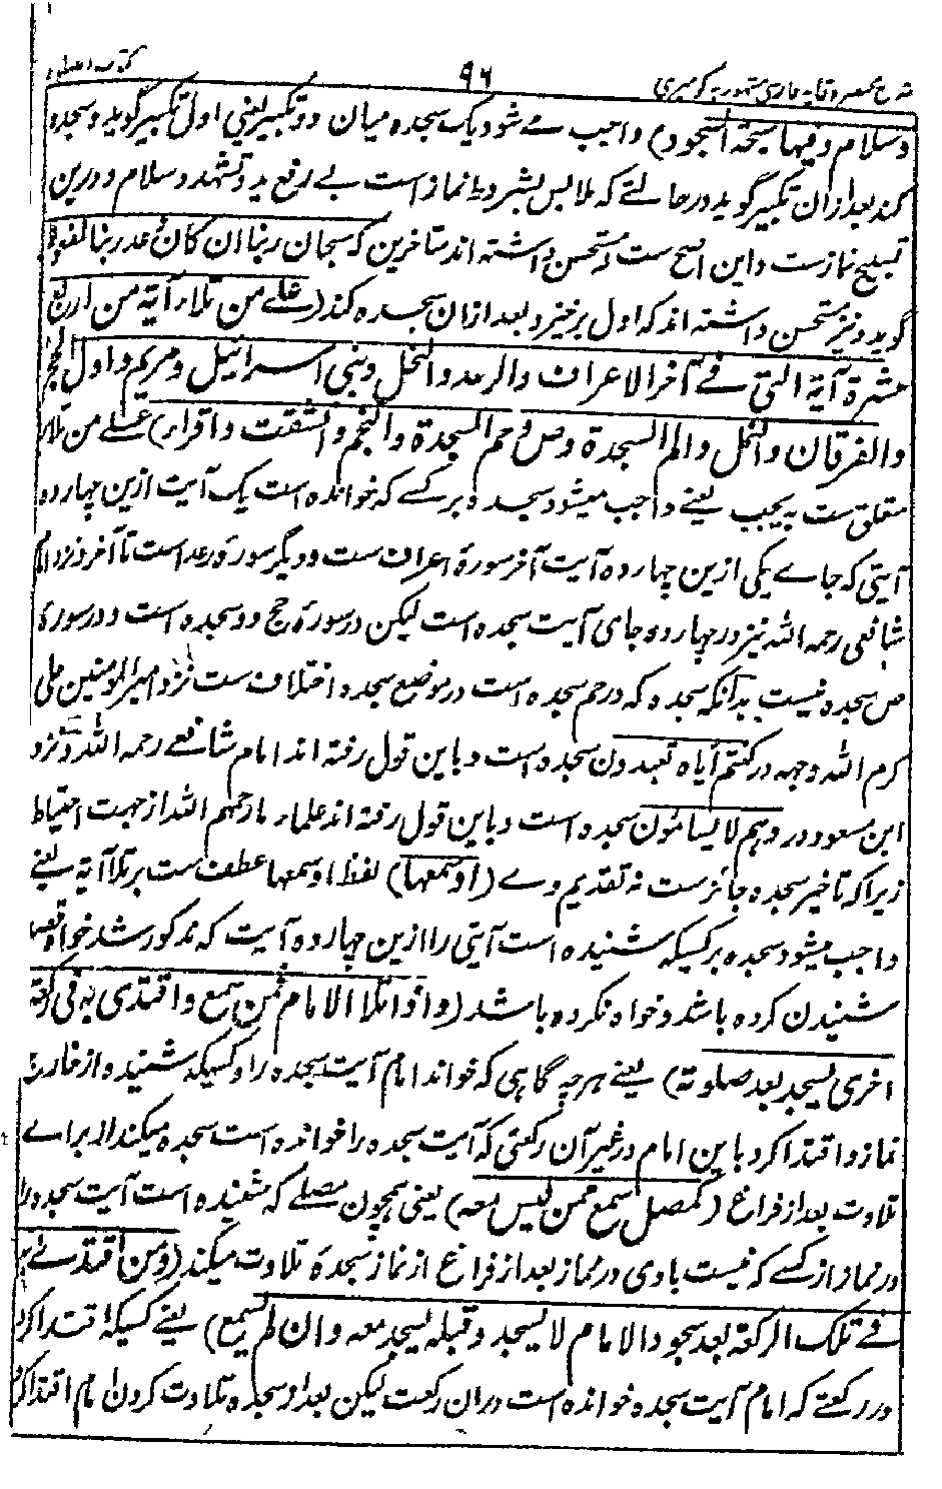 ۹۶
وسلام وفیها سبحة السجود) واجب مے شود یک سجده میان دو تکبیر یعنی اول تکبیر گوید و سجده
کند بعد ازان تکبیر گوید در حالتے که ملابس بشروط نماز است بے رفع ید و تشهد و سلام و درین
تسبیح نمازست و این اصح ست و مستحسن داشته اند متاخرین که سبحان ربنا ان کان وعد ربنا لمفعولا
گوید و نیز مستحسن داشته اند که اول برخیزد و بعد ازان سجده کند (علے من تلا آیة من اربع
عشرة آیة التی فے آخر الاعراف والرعد والنحل وبنی اسرائیل ومریم واول الحج
والفرقان والنمل والم السجدة وص وحم السجدة والنجم وانشقت واقرا) علے من تلا
متعلق ست به یجب یعنے واجب میشود سجده بر کسے که خوانده است یک آیت ازین چهارده
آیتی که جاے یکی ازین چهارده آیت آخر سورهٔ اعراف ست و دیگر سورهٔ رعد است تا آخر و نزد امام
شافعی رحمه الله نیز در چهارده جای آیت سجده است لیکن در سورهٔ حج دو سجده است و در سورهٔ
ص سجده نیست بدانکه سجده که در حم سجده است در موضع سجده اختلاف ست نزد امیر المومنین علی
کرم الله وجهه در کنتم ایاه تعبدون سجده است و باین قول رفته اند امام شافعے رحمه الله و نزد
ابن مسعود در وهم لا یسامون سجده است و باین قول رفته اند علماء ما رحمهم الله از جهت احتیاط
زیرا که تاخیر سجده جائز ست نه تقدیم وے (او سمعها) لفظ او سمعها عطف ست بر تلا آیة یعنے
واجب میشود سجده بر کسیکه شنیده است آیتی را ازین چهارده آیت که مذکور شد خواه قصد
شنیدن کرده باشد و خواه نکرده باشد (واذا تلا الامام فمن سمع واقتدی به فی رکعة
اخری یسجد بعد صلوته) یعنے هر چه گاهی که خواند امام آیت سجده را و کسیکه شنید و از خارج
نماز و اقتدا کرد باین امام در غیر آن رکعتی که آیت سجده را خوانده است سجده میکند از براے
تلاوت بعد از فراغ (کمصل سمع ممن لیس معه) یعنی همچون مصلے که شنیده است آیت سجده را
در نماز از کسے که نیست باوی در نماز بعد از فراغ از نماز سجدهٔ تلاوت میکند (ومن اقتدے به
فے تلک الرکعة بعد سجود الامام لا یسجد وقبله یسجد معه وان لم یسمع) یعنے کسیکه اقتدا کرد
در رکعتے که امام آیت سجده خوانده است دران رکعت لیکن بعد از سجده تلاوت کردن امام اقتدا کرد